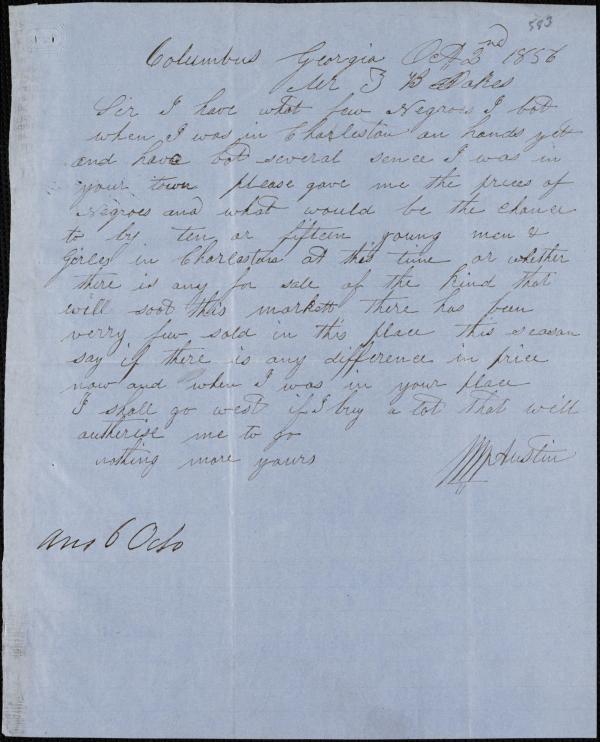 593
Columbus Georgia Oct 2nd 1856
Mr Z B Oakes
Sir I have what few Negroes I bot
when I was in Charleston on hands yet
and have bot several sence I was in
your town please gave me the prices of
Negroes and what would be the chance
to by ten or fifteen young men &
girles in Charleston at this time or whether
there is any for sale of the kind that
will soot this markett there has been
verry few sold in this place this season
say if there is any difference in price
now and when I was in your place
I shall go west if I buy a lot that will
autherise me to go
nothing more yours
Austin
ans 6 Octo